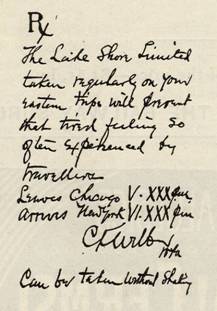 Rx
The Lake Shore Limited
taken regularly on your
eastern trips will prevent
that tired feeling so
often experienced by
travellers
Leaves Chicago V:XXX pm
Arrives New York VI:XXX pm
Can be taken without Shaking